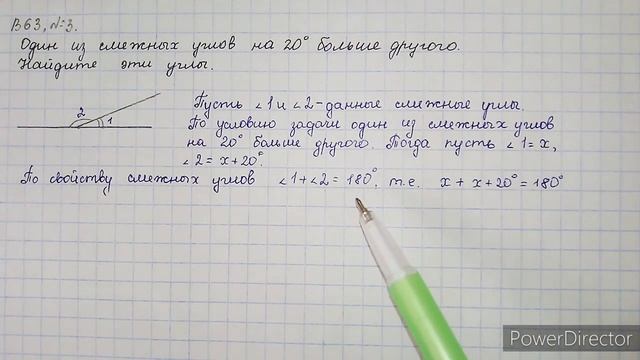 В63, №3.
Один из смежных углов на 20° больше другого.
Найдите эти углы.
2
1
Пусть ∠1 и ∠2 - данные смежные углы.
По условию задачи один из смежных углов
на 20° больше другого. Тогда пусть ∠1 = x,
∠2 = x + 20°.
По свойству смежных углов ∠1 + ∠2 = 180°, т.е. x + x + 20° = 180°
PowerDirector